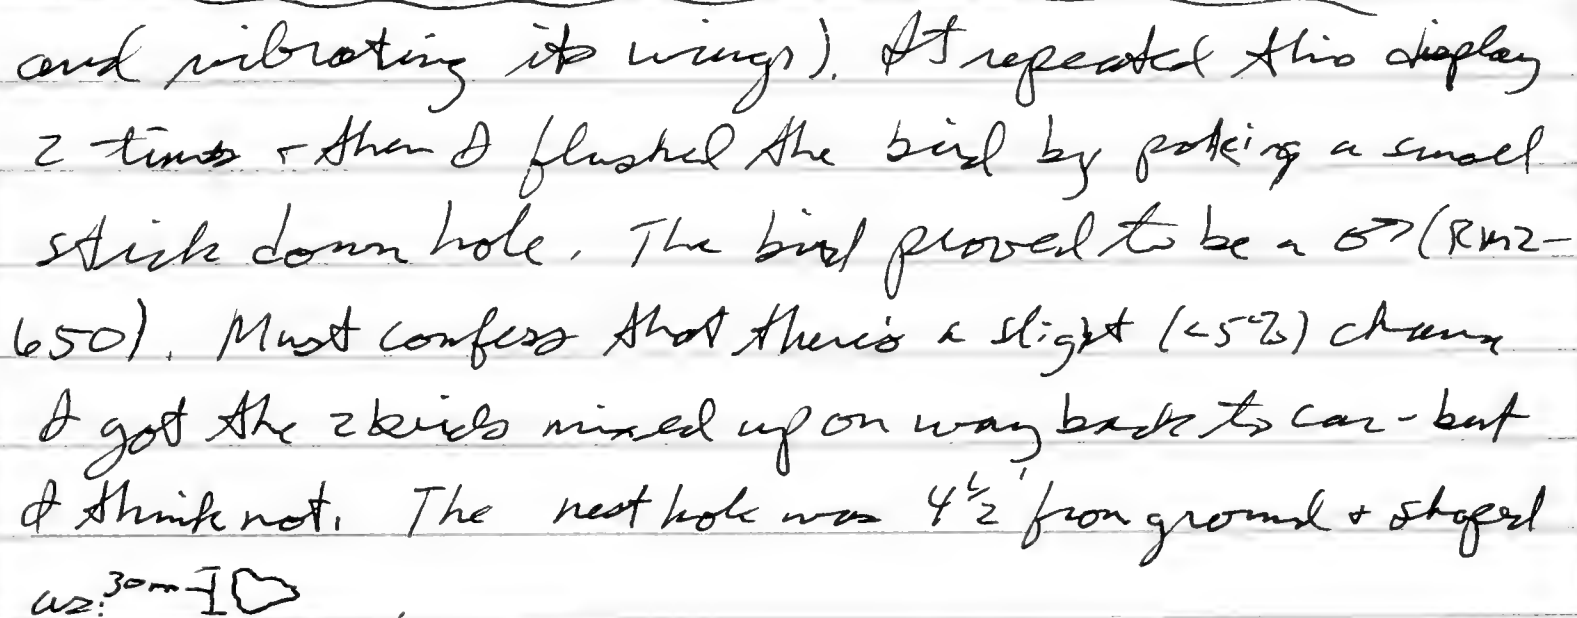 and vibrating its wings). It repeated this display
2 times + then I flushed the bird by poking a small
stick down hole. The bird proved to be a ♂ (RMZ-
650). Must confess that there's a slight (<5%) chance
I got the 2 birds mixed up on way back to car - but
I think not. The nest hole was 4½' from ground + shaped
as: 30mm